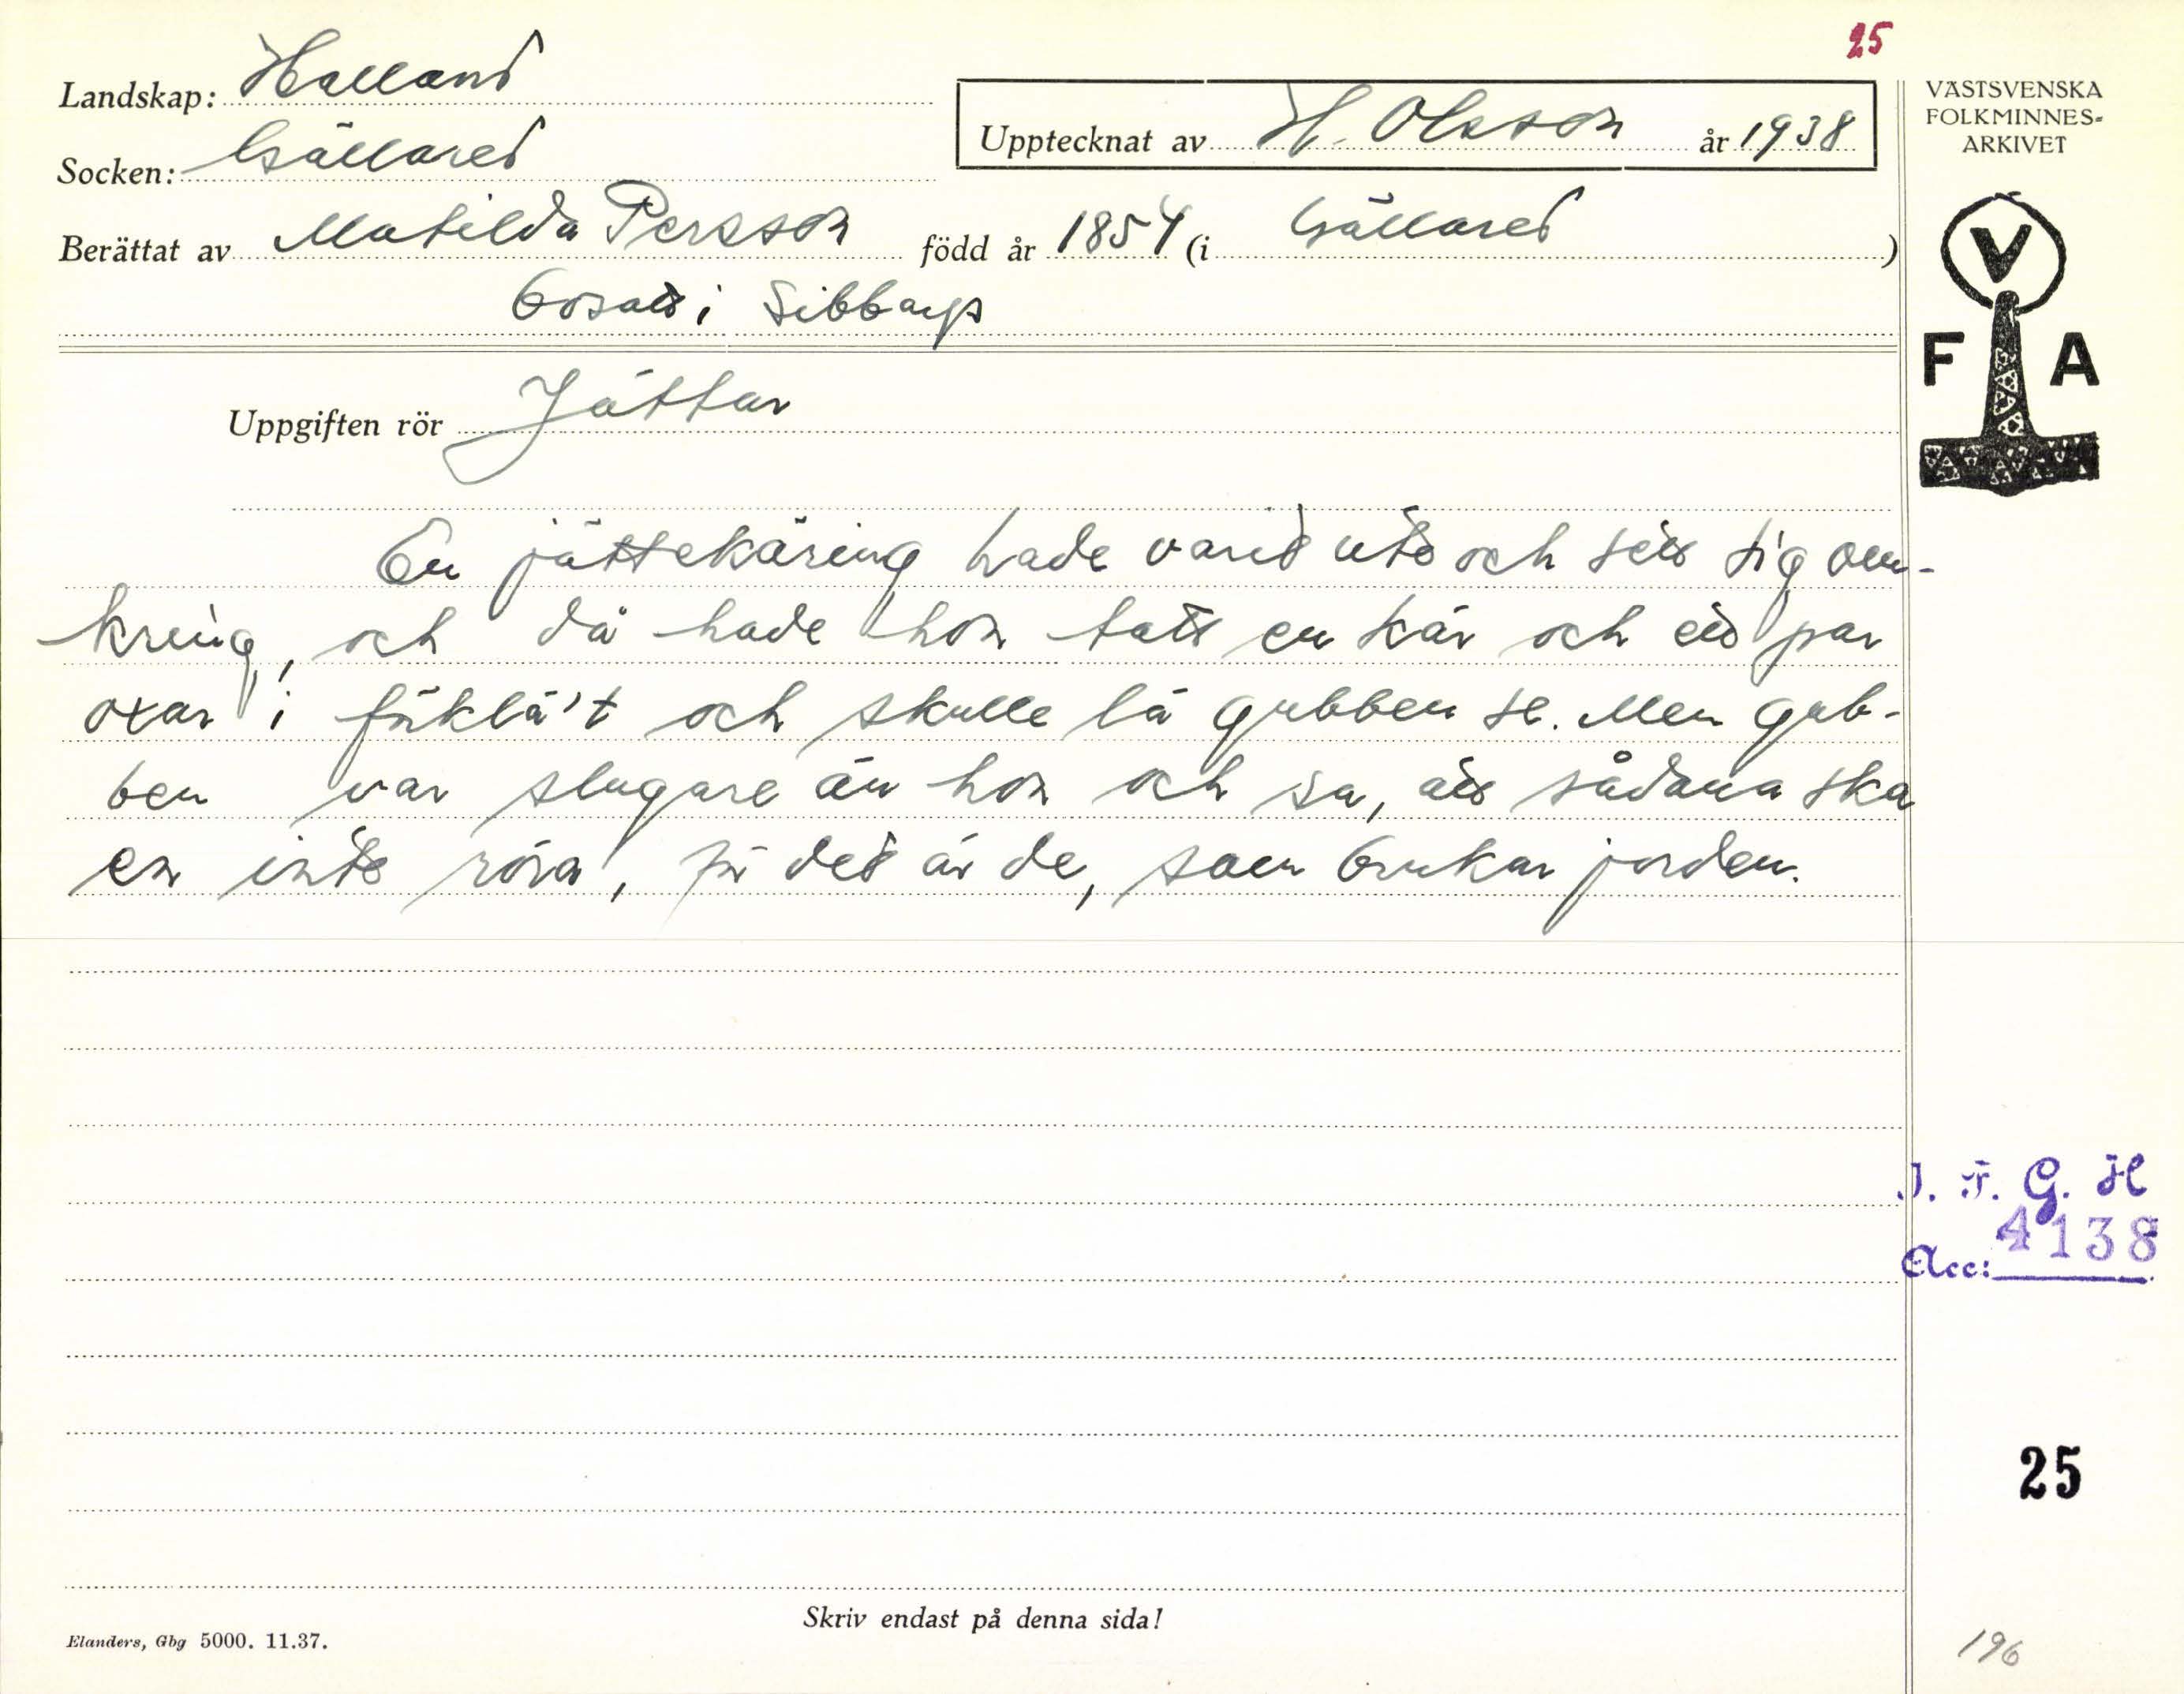 25
Landskap: Halland
Upptecknat av H. Olsson år 1938
Socken: Gällared
Berättat av Matilda Persson född år 1854 (i Gällared)
bosatt i Sibbarp
Uppgiften rör Jättar
En jättekäring hade varit ute och sett sig om-
kring, och då hade hon tatt en kär och ett par
oxar i förklä't och skulle lå gubben se. Men gub-
ben var slugare än hon och sa, att sådana ska
en inte röra, för det är de, som brukar jorden.
VÄSTSVENSKA
FOLKMINNES-
ARKIVET
V
F A
I. F. G. H
Acc: 4138
25
Skriv endast på denna sida!
Elanders, Gbg 5000. 11.37.
196